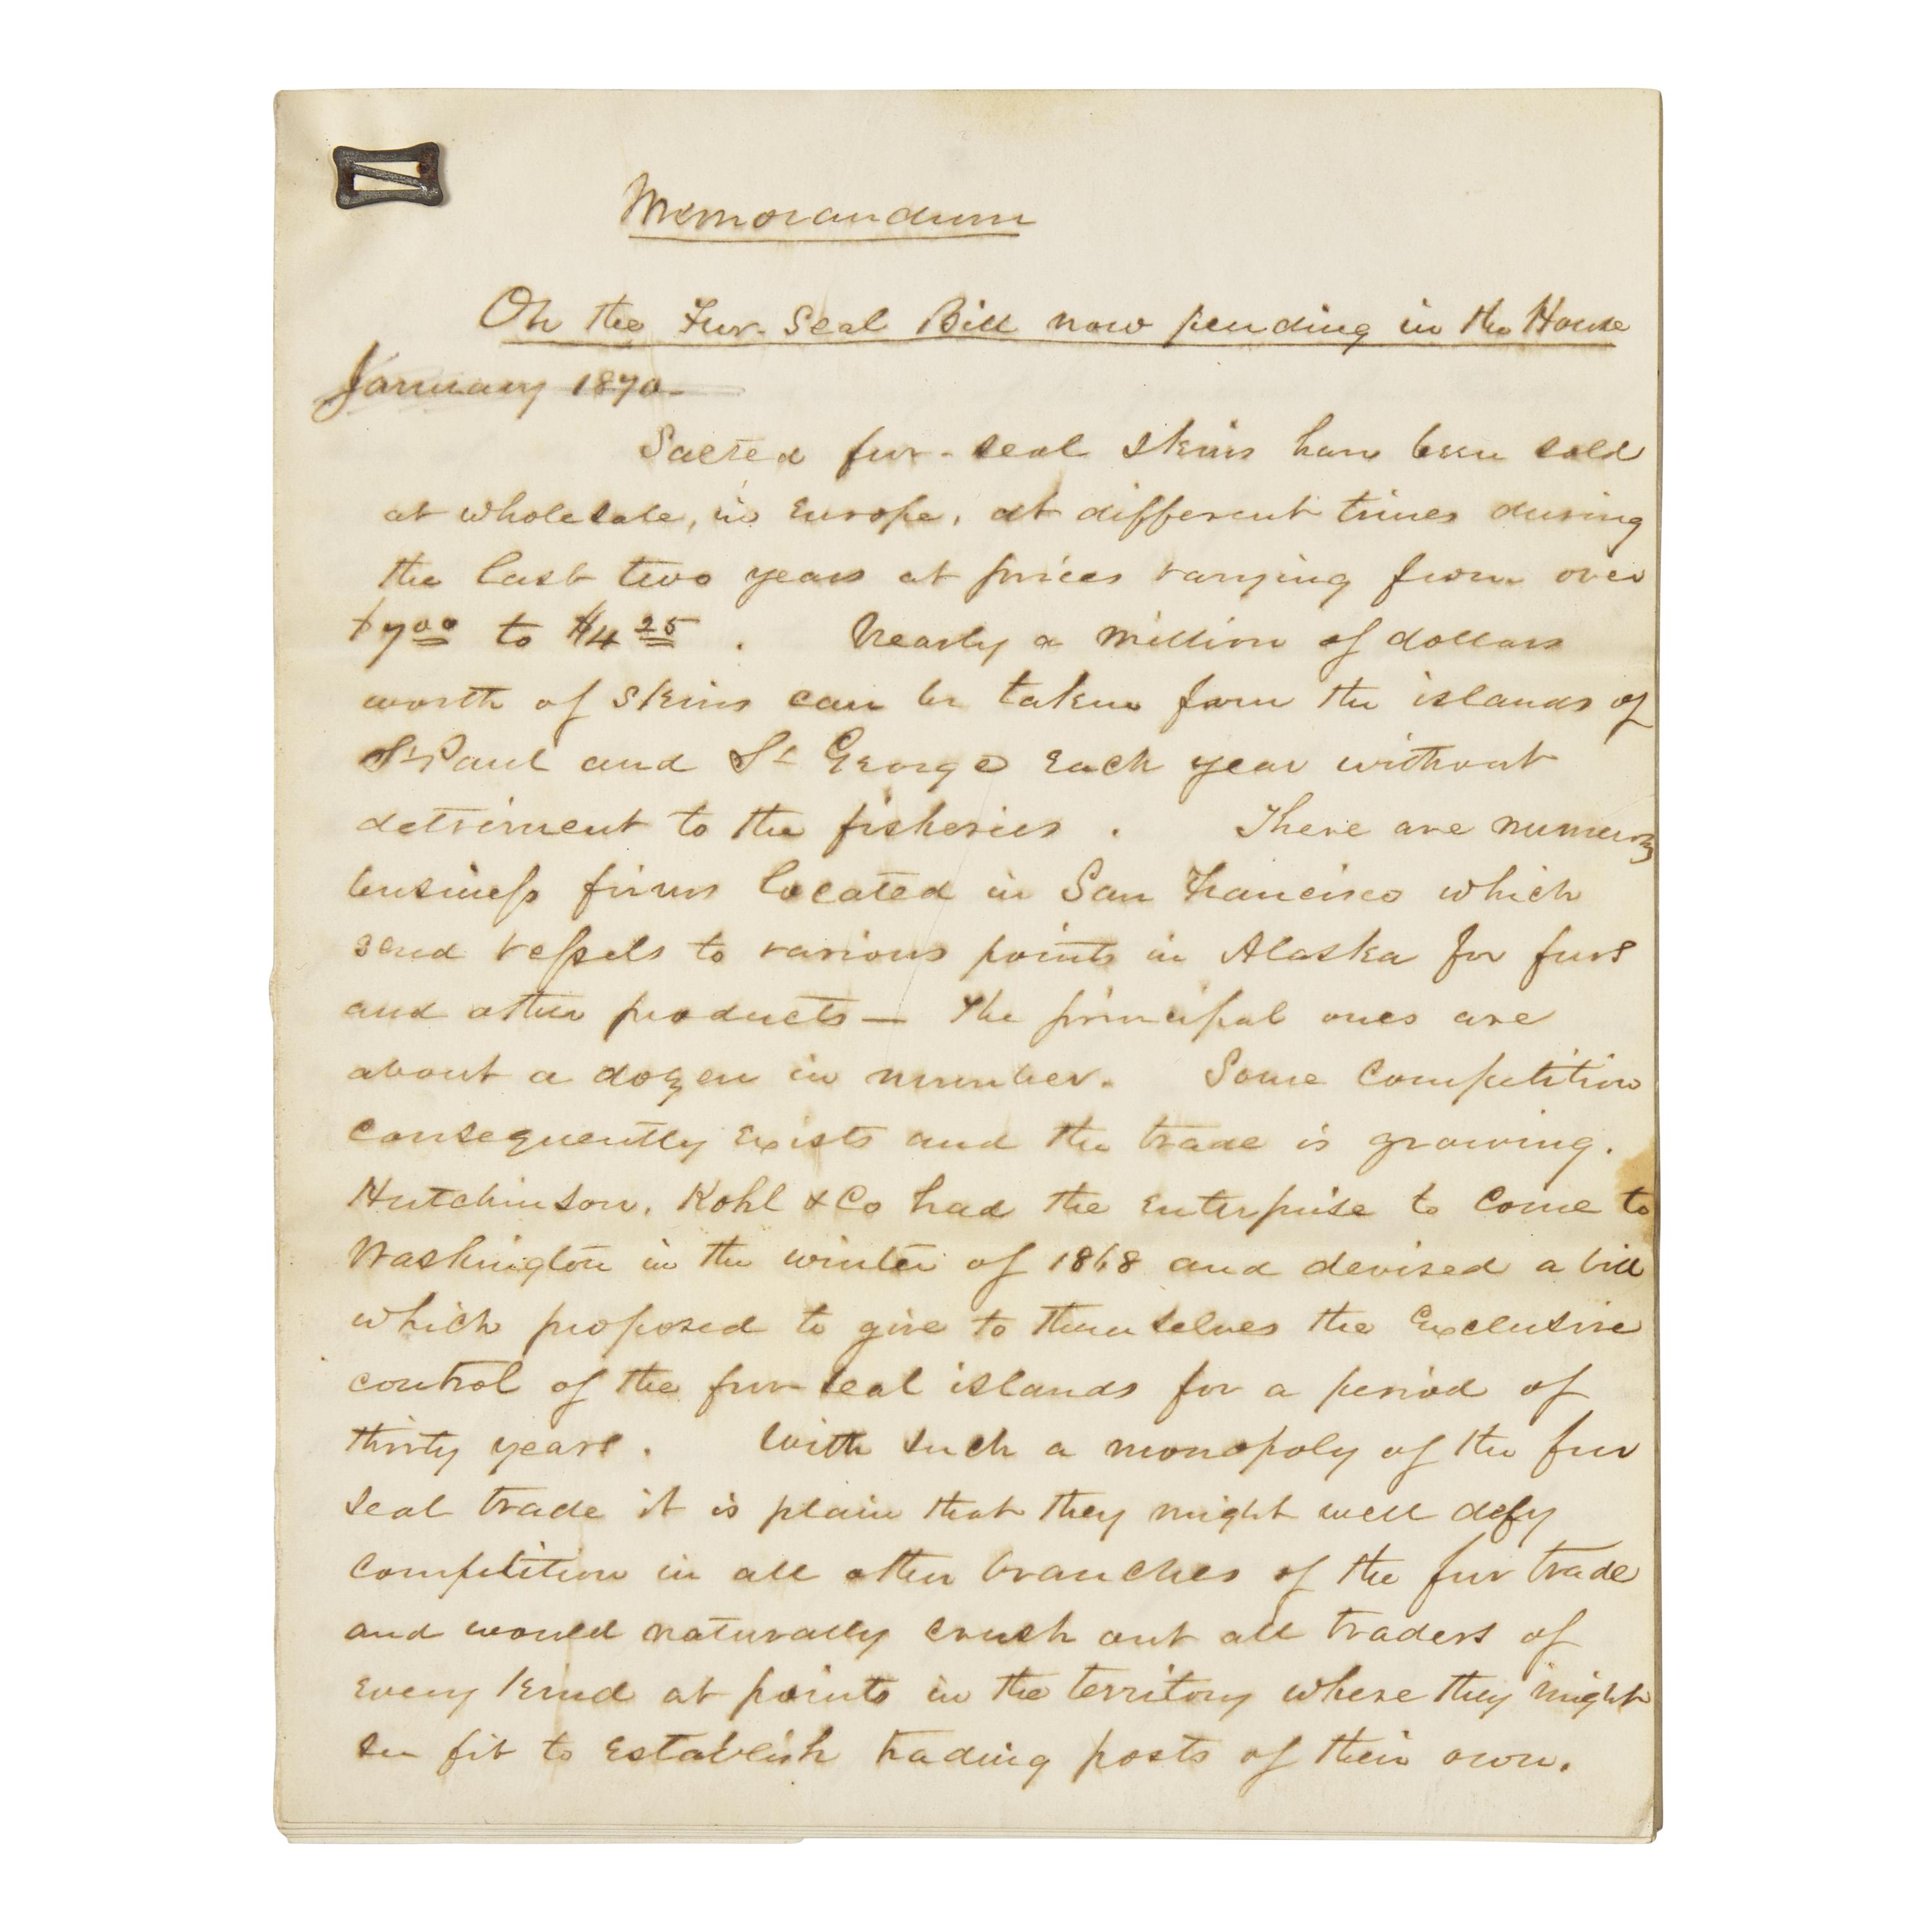 Memorandum
On the Fur-Seal Bill now pending in the House
January 1870-
Salted fur-seal skins have been sold
at wholesale, in Europe, at different times during
the last two years at prices varying from over
$7.00 to $4.25. Nearly a million of dollars
worth of skins can be taken from the islands of
St Paul and St George each year without
detriment to the fisheries. There are numerous
business firms located in San Francisco which
send vessels to various points in Alaska for furs
and other products — The principal ones are
about a dozen in number. Some competition
consequently exists and the trade is growing.
Hutchinson, Kohl & Co had the enterprise to come to
Washington in the winter of 1868 and devised a bill
which proposed to give to themselves the exclusive
control of the fur-seal islands for a period of
thirty years. With such a monopoly of the fur
seal trade it is plain that they might well defy
competition in all other branches of the fur trade
and would naturally crush out all traders of
every kind at points in the territory where they might
see fit to establish trading posts of their own.